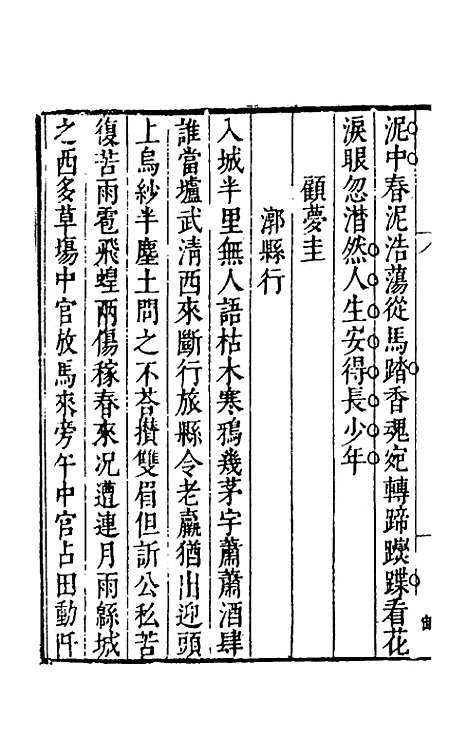 泥中春泥浩蕩從馬踏香魂宛轉蹄蹤蹀看花
淚眼忽潸然人生安得長少年
顧夢圭
漷縣行
入城半里無人語枯木寒鴉幾茅宇蕭蕭酒肆
誰當壚武淸西來斷行旅縣令老羸猶出迎頭
上烏紗半塵土問之不荅攅雙眉但訴公私苦
復苦雨雹飛蝗兩傷稼春來况遭連月雨縣城
之西多草塲中官放馬來旁午中官占田動阡